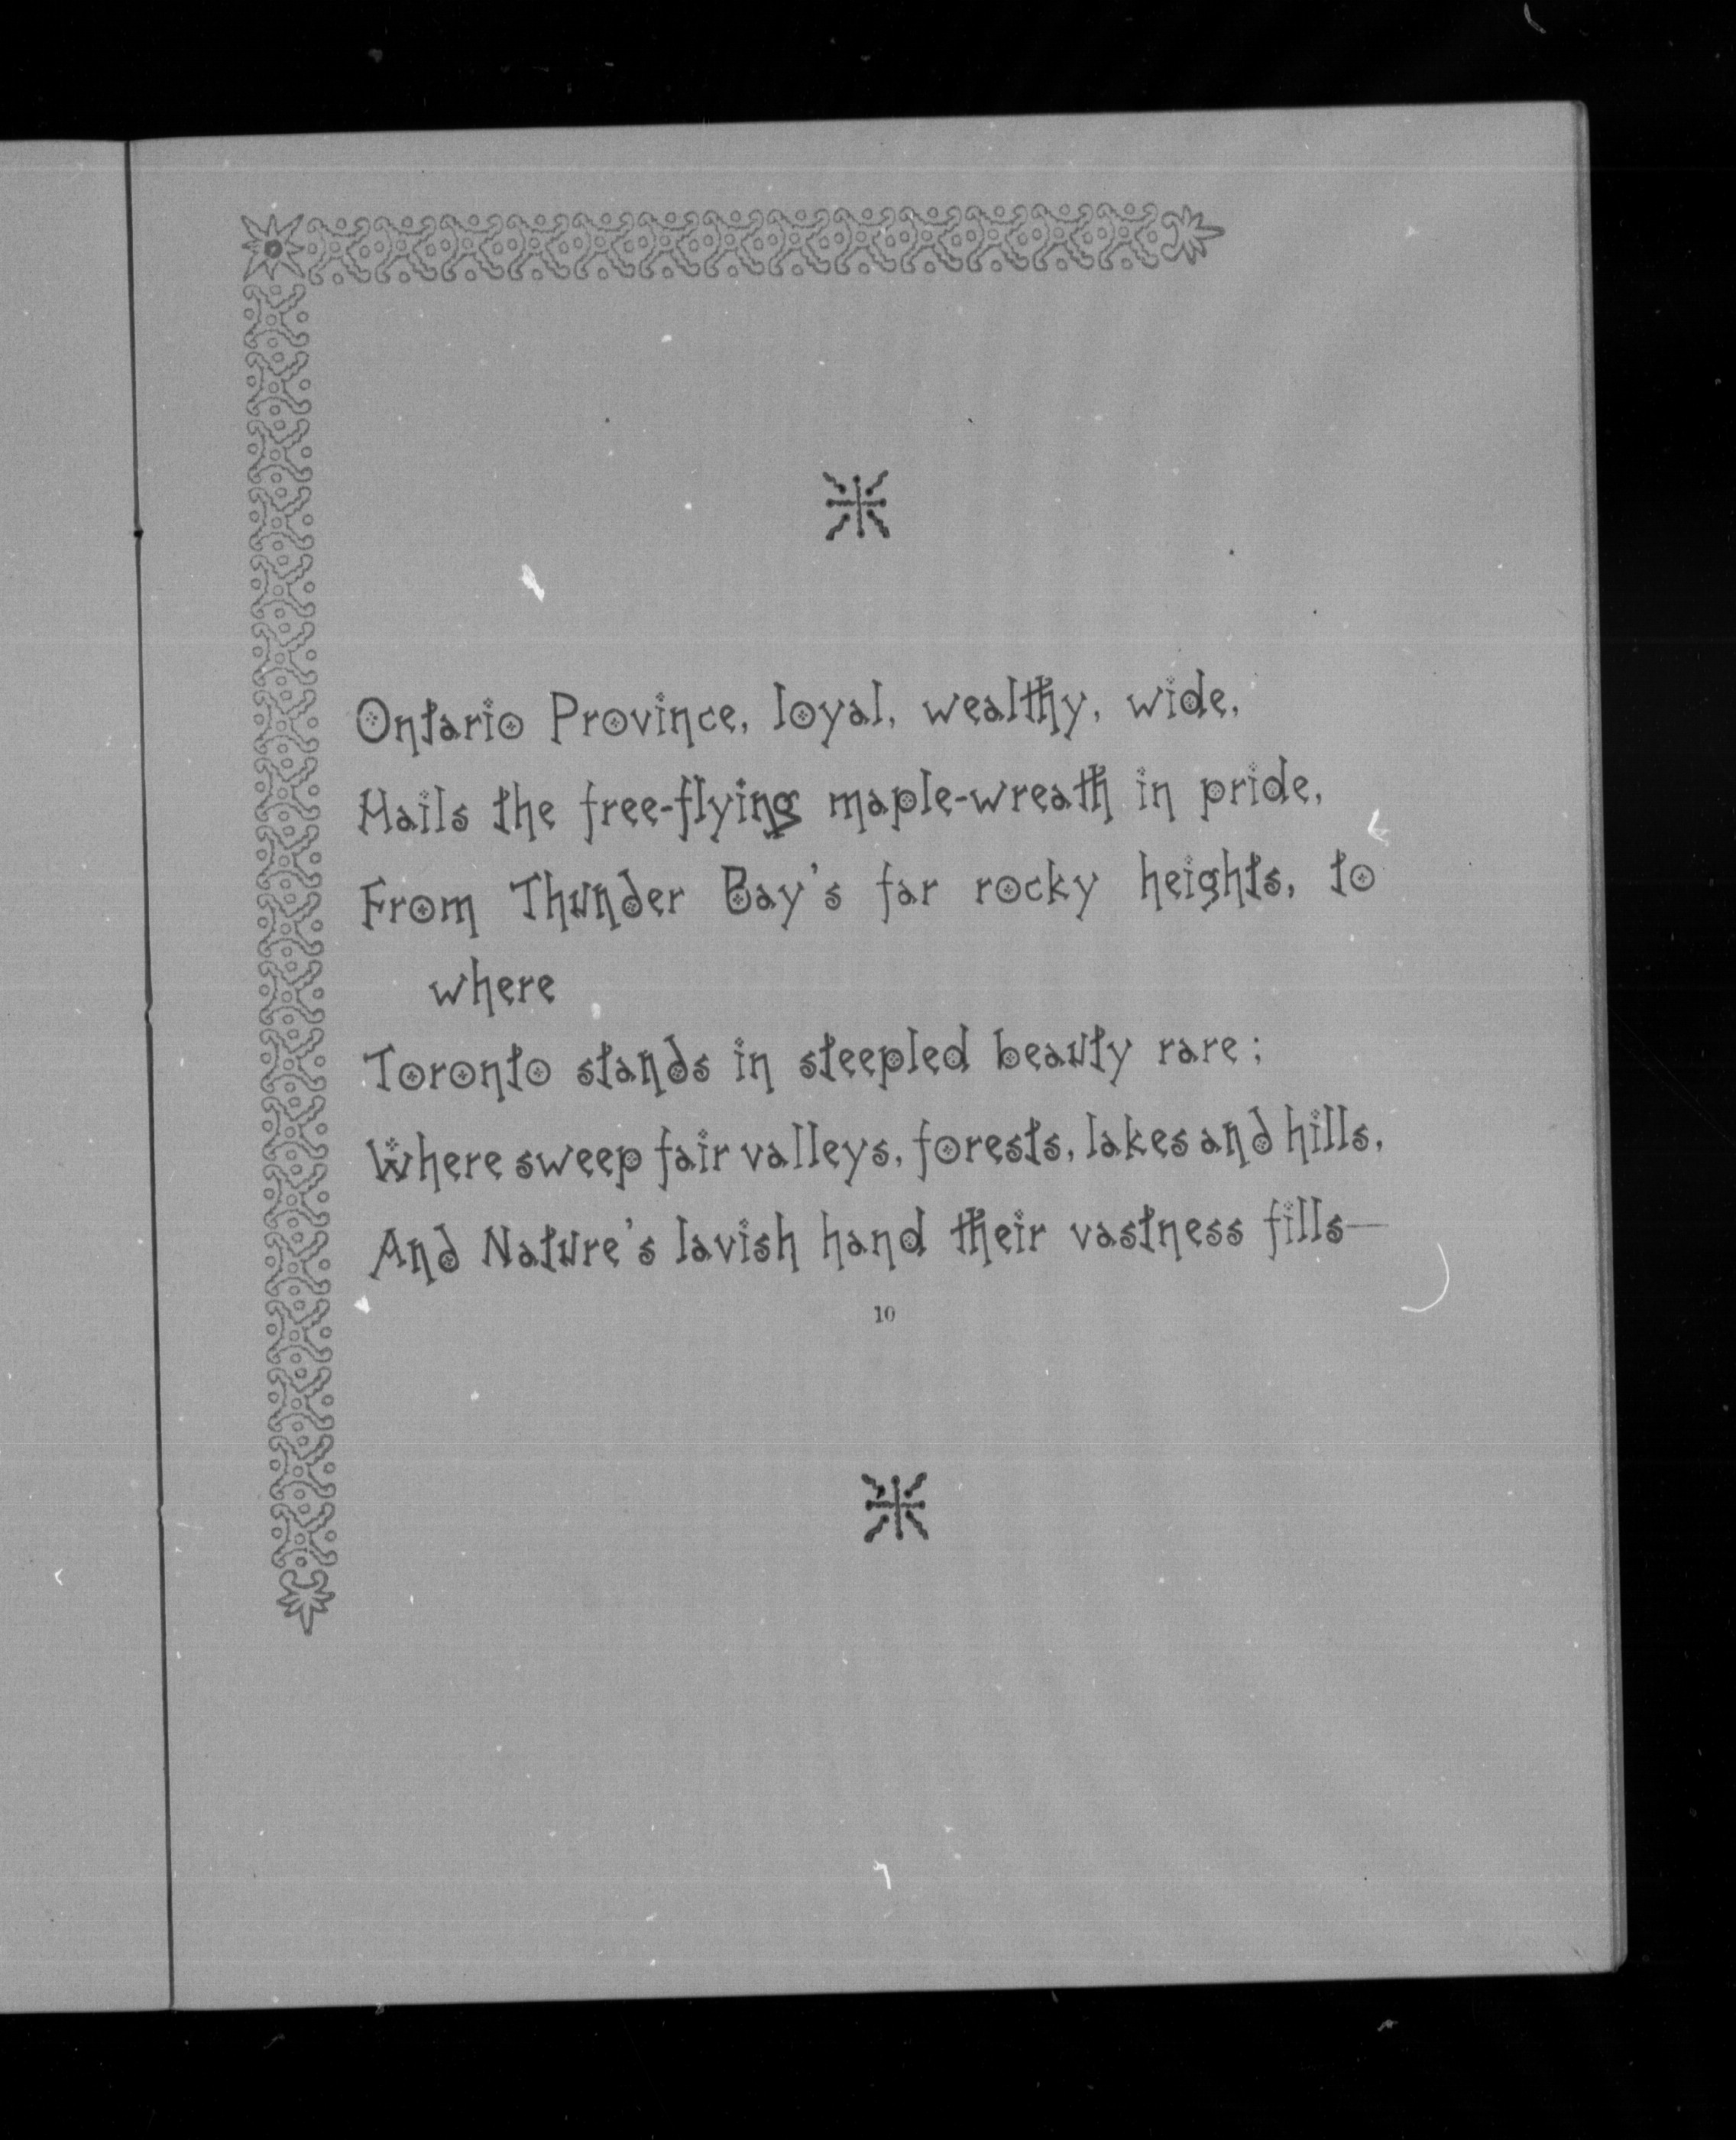 Ontario Province, loyal, wealthy, wide,
Hails the free-flying maple-wreath in pride,
From Thunder Bay's far rocky heights, to
where
Toronto stands in steepled beauty rare;
Where sweep fair valleys, forests, lakes and hills,
And Nature's lavish hand their vastness fills—
10